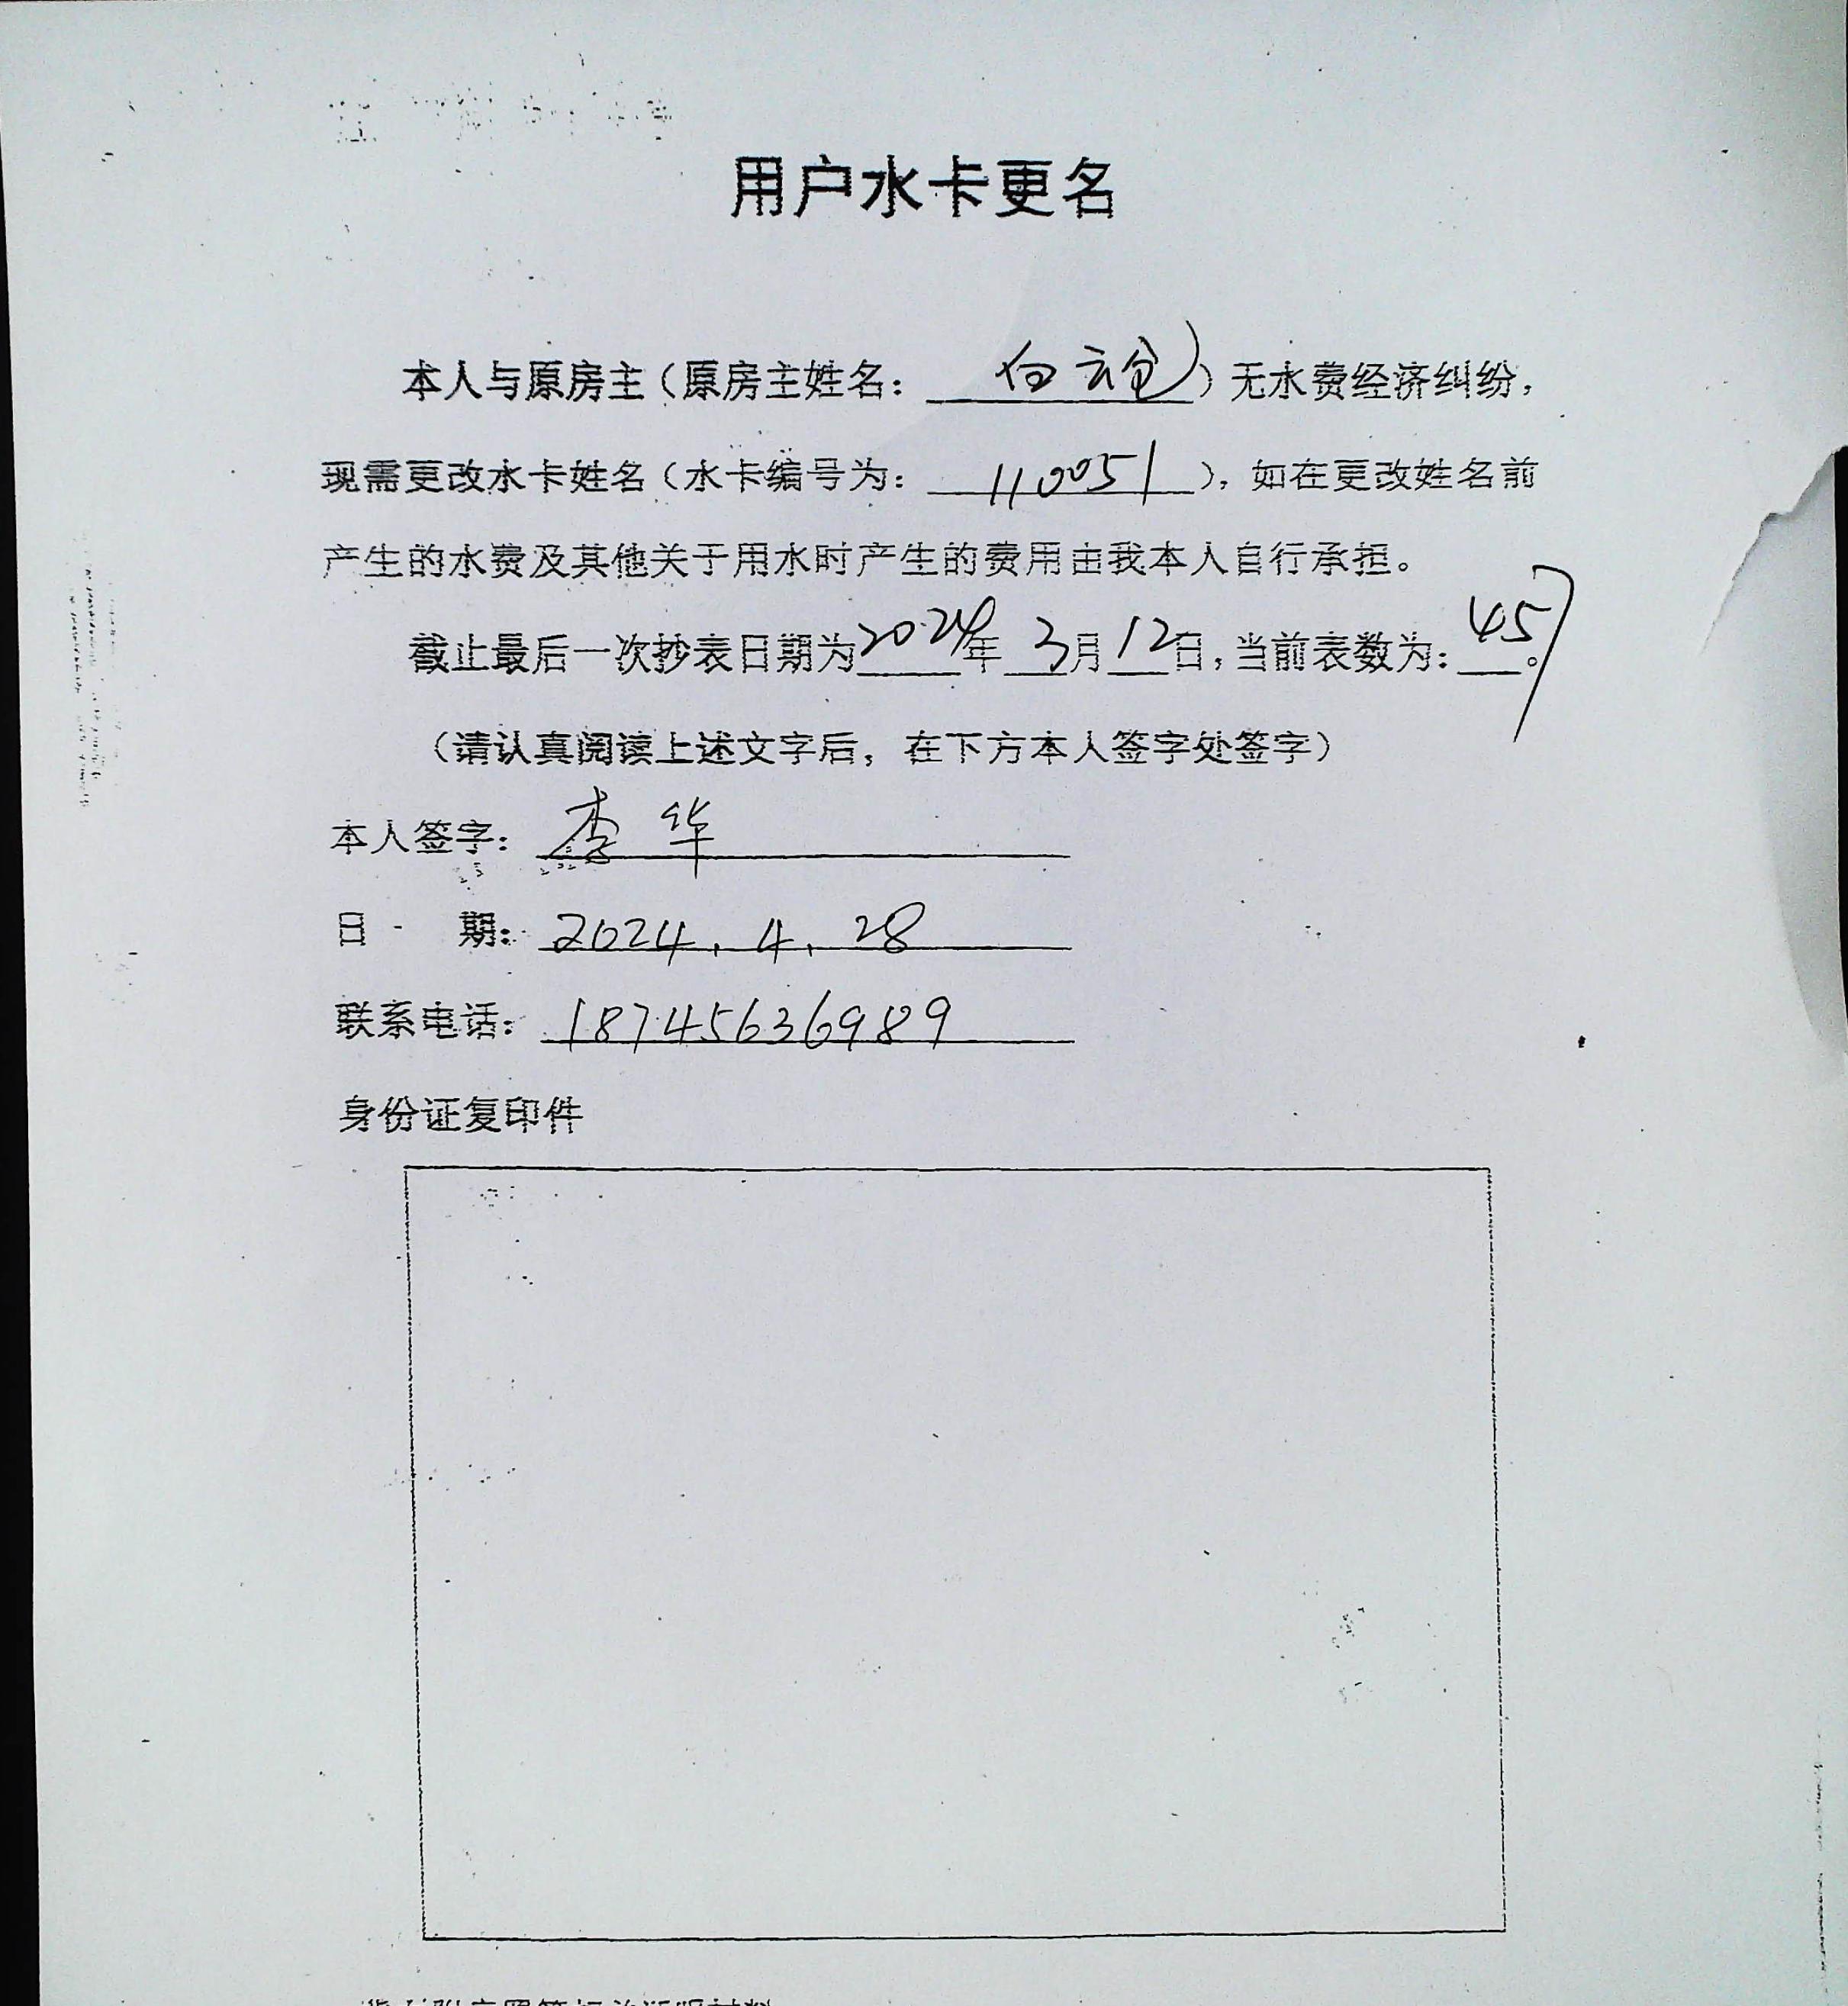 用户水卡更名
本人与原房主（原房主姓名：白云）无水费经济纠纷，
现需更改水卡姓名（水卡编号为：110051），如在更改姓名前
产生的水费及其他关于用水时产生的费用由我本人自行承担。
截止最后一次抄表日期为2024年3月12日，当前表数为：457。
（请认真阅读上述文字后，在下方本人签字处签字）
本人签字：李华
日期：2024.4.28
联系电话：18745636989
身份证复印件